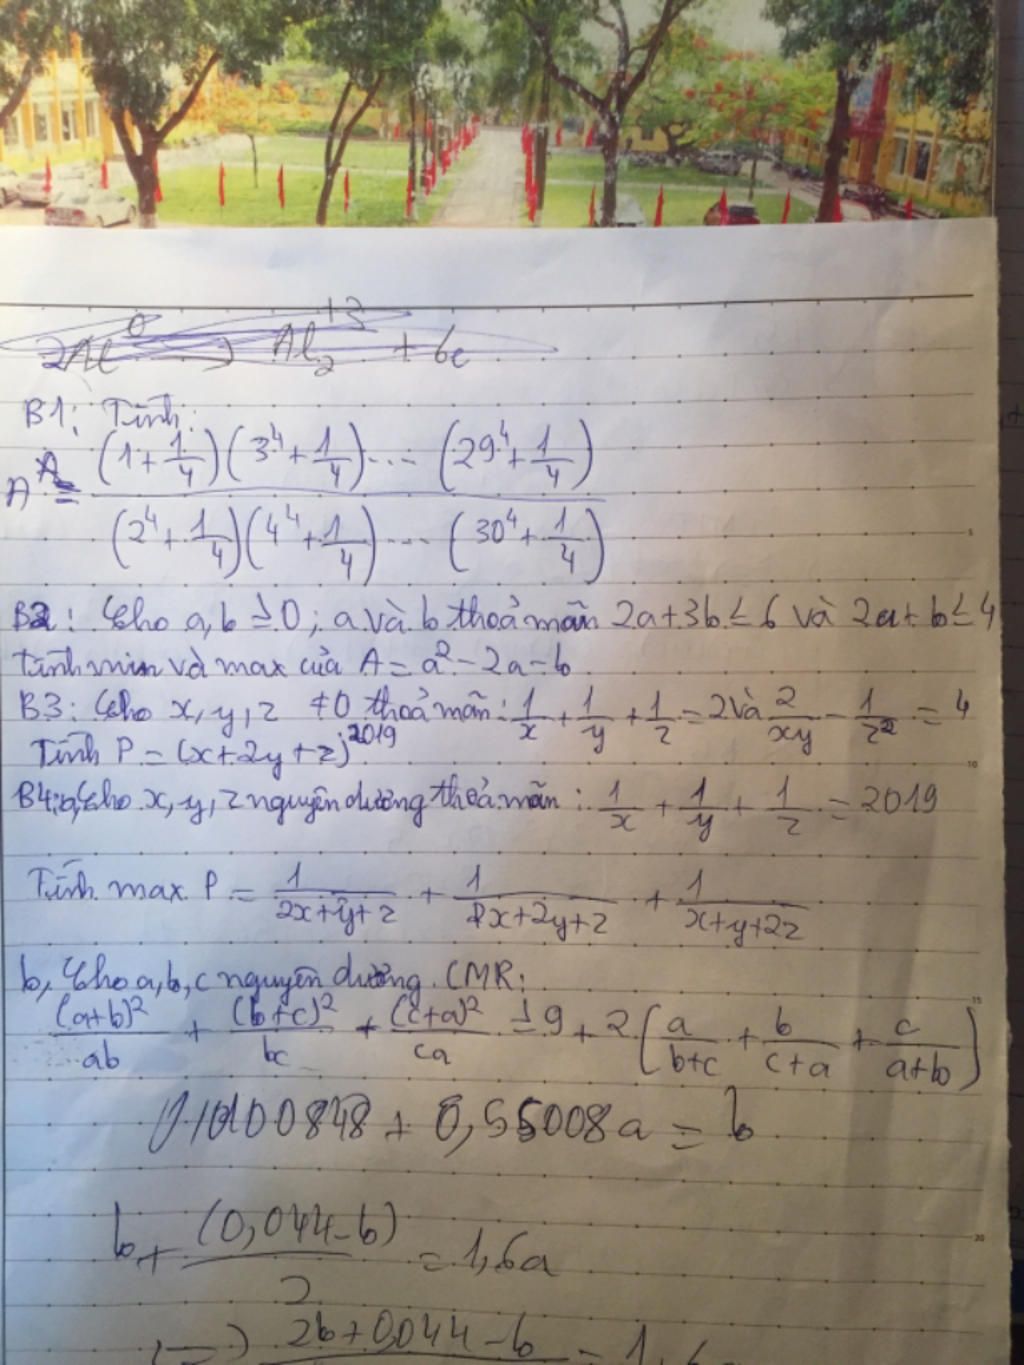 2Al⁰ → Al₂⁺³ + 6e
B1: Tính:
A = (1+1/4)(3⁴+1/4)...(29⁴+1/4) / (2⁴+1/4)(4⁴+1/4)...(30⁴+1/4)
B2: Cho a,b ≥0; a và b thoả mãn 2a+3b≤6 và 2a+b≤4
Tính min và max của A=a²-2a-b
B3: Cho x,y,z ≠0 thoả mãn: 1/x+1/y+1/z=2 và 2/xy-1/z²=4
Tính P=(x+2y+z)²⁰¹⁹
B4: a, Cho x,y,z nguyên dương thoả mãn: 1/x+1/y+1/z=2019
Tính max P=1/(2x+y+z)+1/(x+2y+z)+1/(x+y+2z)
b, Cho a,b,c nguyên dương. CMR:
(a+b)²/ab+(b+c)²/bc+(c+a)²/ca≥9+2(a/(b+c)+b/(c+a)+c/(a+b))
00848+0,55008a=b
b+(0,044-b)/2=1,6a
2b+0,044-b